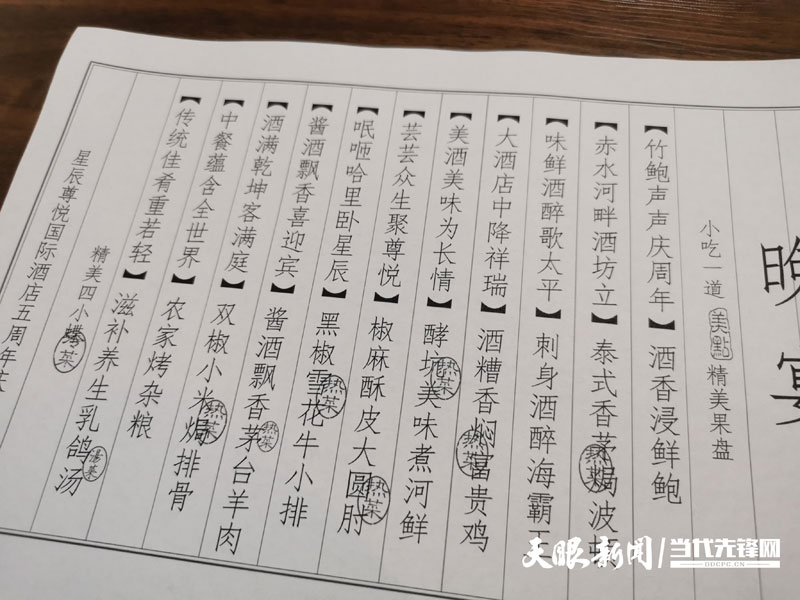 晚宴
小吃一道 美點 精美果盘
【竹鲍声声庆周年】酒香浸鲜鲍
【赤水河畔酒坊立】泰式香茅焗波 热菜
【味鲜酒醉歌太平】刺身酒醉海霸王
【大酒店中降祥瑞】酒糟香焖富贵鸡 热菜
【美酒美味为长情】酵坑美味煮河鲜 热菜
【芸芸众生聚尊悦】椒麻酥皮大圆肘 热菜
【咂哈里卧星辰】黑椒雪花牛小排 热菜
【酱酒飘香喜迎宾】酱酒飘香茅台羊肉 热菜
【酒满乾坤客满庭】双椒小米焗排骨 热菜
【中餐蕴含全世界】农家烤杂粮
【传统佳肴重若轻】滋补养生乳鸽汤 湯菜
精美四小 菜
星辰尊悦国际酒店五周年
天眼新闻 当代先锋网
DDCPC.CN